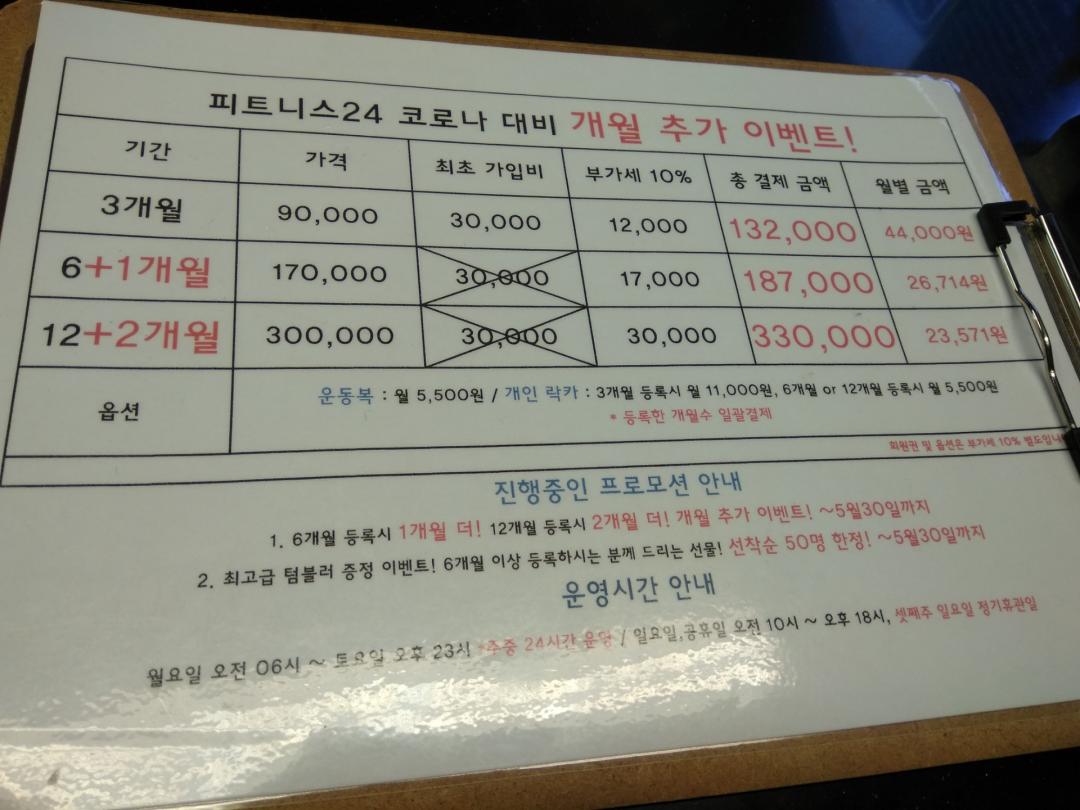 피트니스24 코로나 대비 개월 추가 이벤트!
기간 가격 최초 가입비 부가세 10% 총 결제 금액 월별 금액
3개월 90,000 30,000 12,000 132,000 44,000원
6+1개월 170,000 30,000 17,000 187,000 26,714원
12+2개월 300,000 30,000 30,000 330,000 23,571원
옵션 운동복 : 월 5,500원 / 개인 락카 : 3개월 등록시 월 11,000원, 6개월 or 12개월 등록시 월 5,500원
* 등록한 개월수 일괄결제
회원권 및 옵션은 부가세 10% 별도입니
진행중인 프로모션 안내
1. 6개월 등록시 1개월 더! 12개월 등록시 2개월 더! 개월 추가 이벤트! ~5월30일까지
2. 최고급 텀블러 증정 이벤트! 6개월 이상 등록하시는 분께 드리는 선물! 선착순 50명 한정! ~5월30일까지
운영시간 안내
월요일 오전 06시 ~ 토요일 오후 23시 *주중 24시간 운영 / 일요일,공휴일 오전 10시 ~ 오후 18시, 셋째주 일요일 정기휴관일